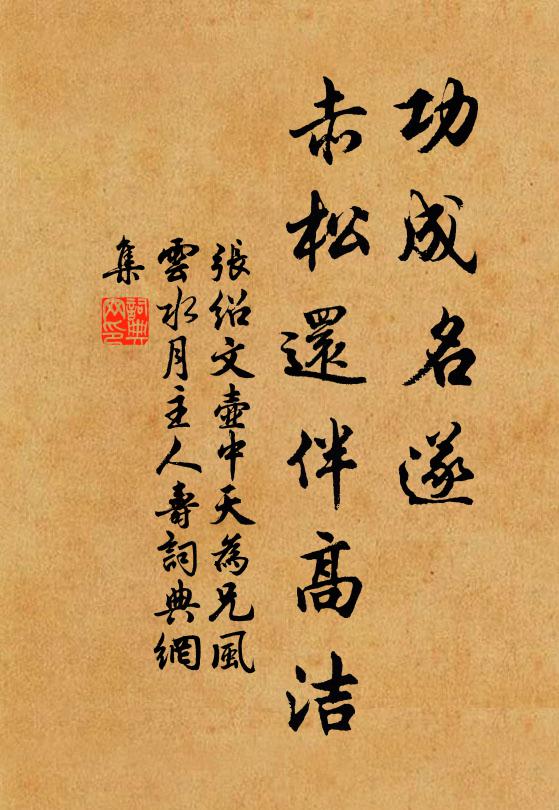 功成名遂
赤松還伴高洁
張绍文壺中天為兄風
雲水月主人壽詞典網
集